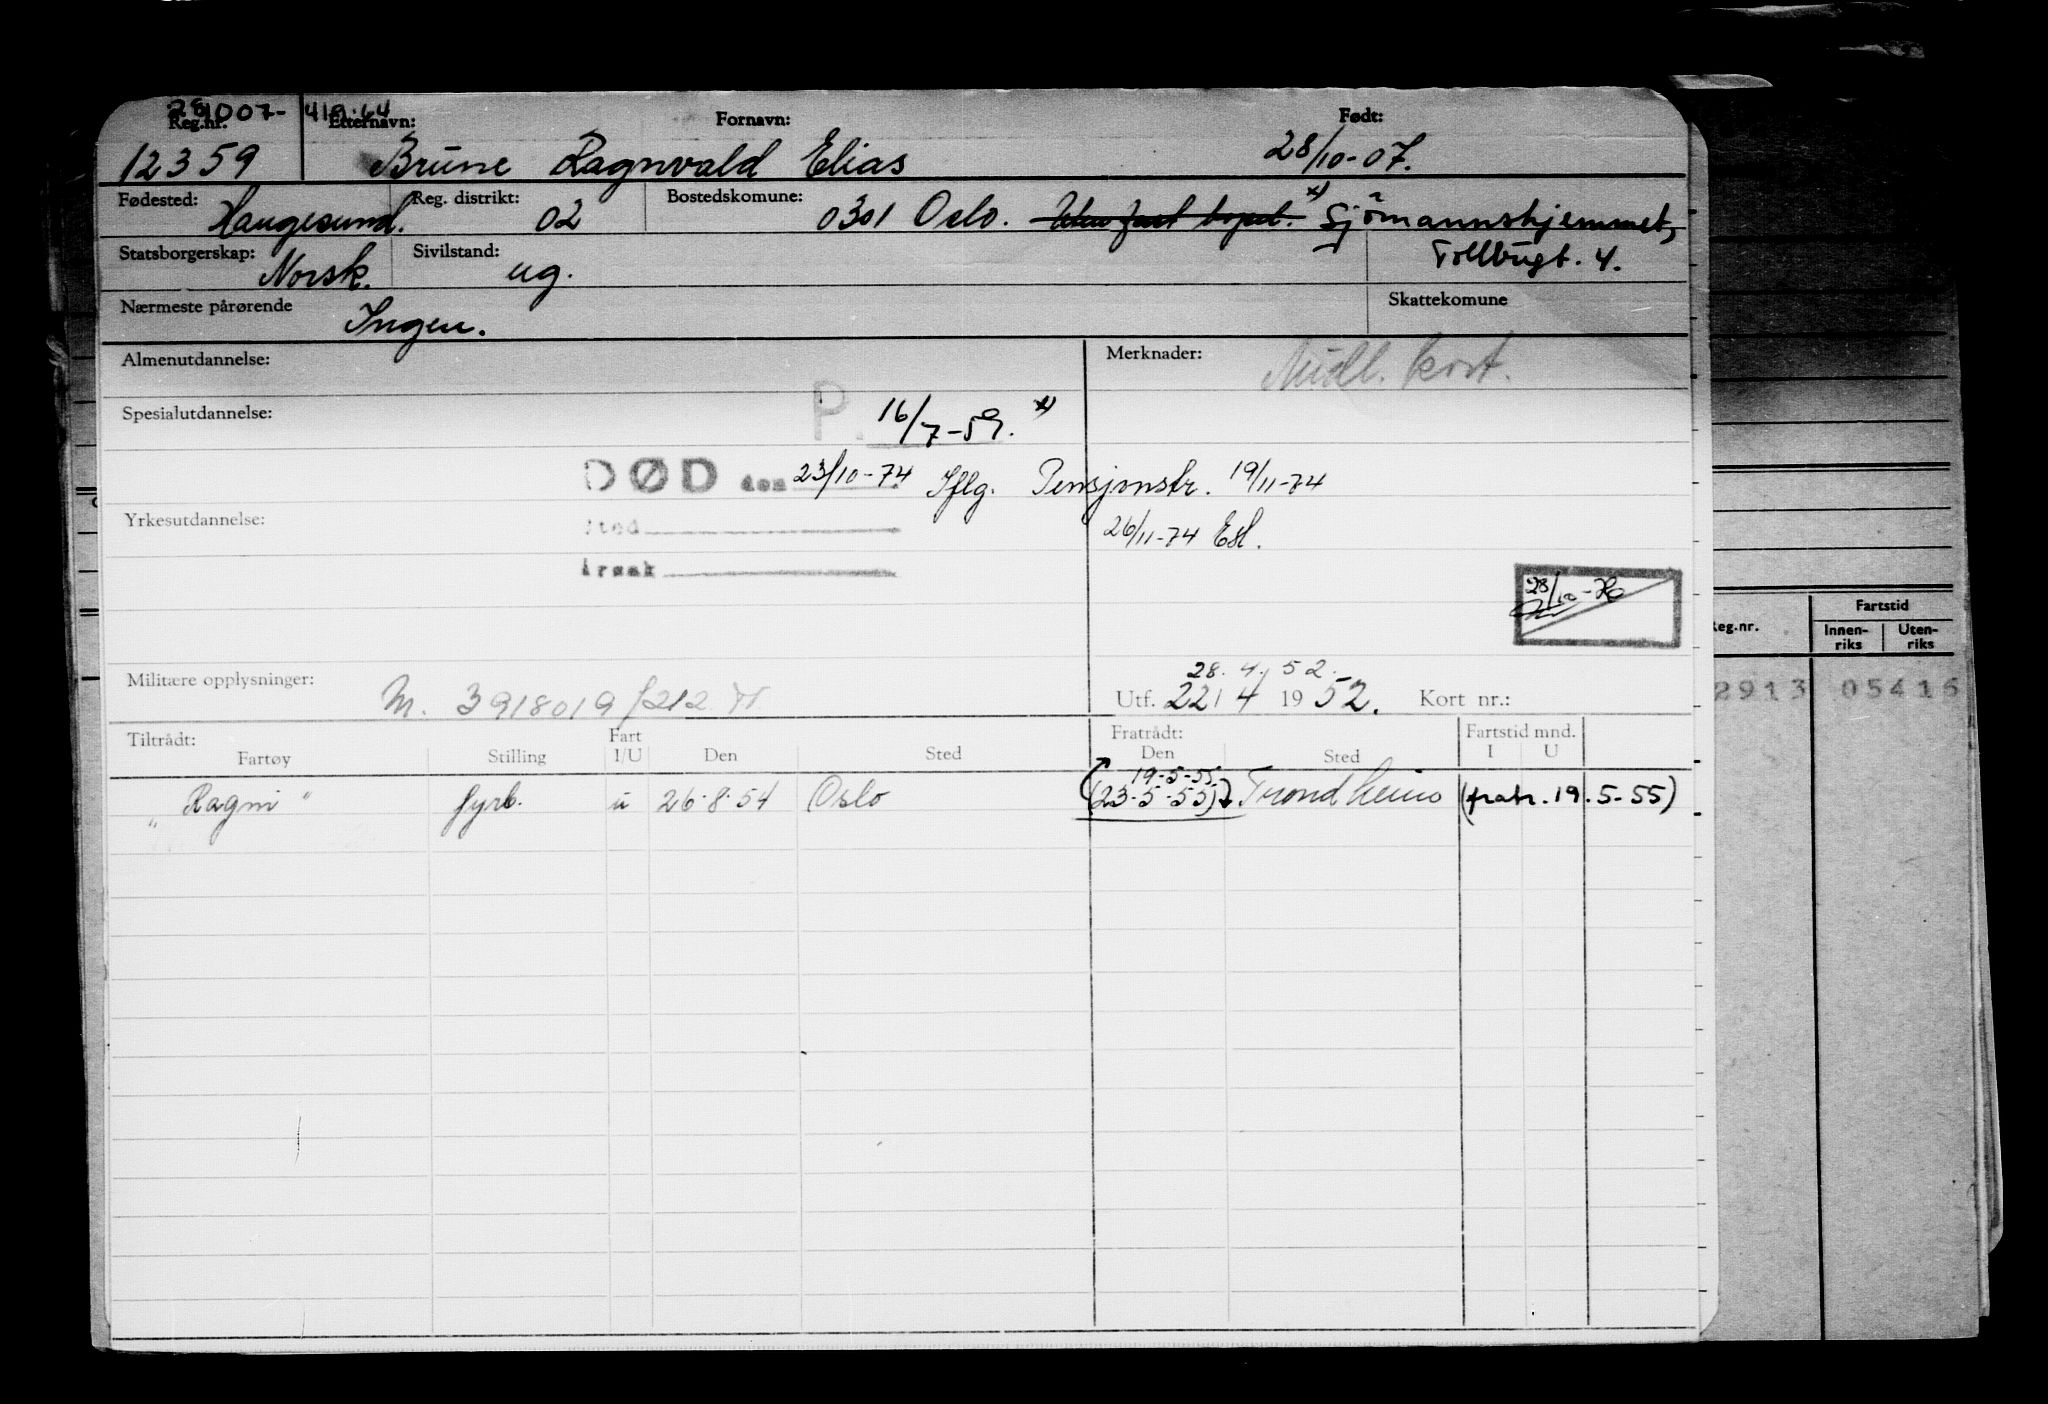 281007- 419.64
Reg.nr. Etternavn: Fornavn: Født:
12359 Brune Ragnvald Elias 28/10-07.
Fødested: Haugesund. Reg. distrikt: 02 Bostedskomune: 0301 Oslo. x) Sjömannshjemmet,
Statsborgerskap: Norsk. Sivilstand: ug. Tollbugt. 4.
Nærmeste pårørende Ingen. Skattekomune
Almenutdannelse: Merknader: Midl. kort.
Spesialutdannelse: P. 16/7-59. x)
DØD den 23/10-74 Iflg. Pensjonstr. 19/11-74
Yrkesutdannelse: Sted 26/11-74 Esl.
Årsak
28/10-70
28. 4. 52.
Militære opplysninger: M. 3918019/212 Utf. 22/4 1952. Kort nr.:
Tiltrådt: Fart Fratrådt: Fartstid mnd.
Fartøy Stilling I/U Den Sted Den Sted I U
19-5-55
"Ragni" fyrb. u 26-8-54 Oslo (23-5-55) Trondheim (fratr. 19.5-55)
Reg.nr. Fartstid
Innen-riks Uten-riks
2913 05416